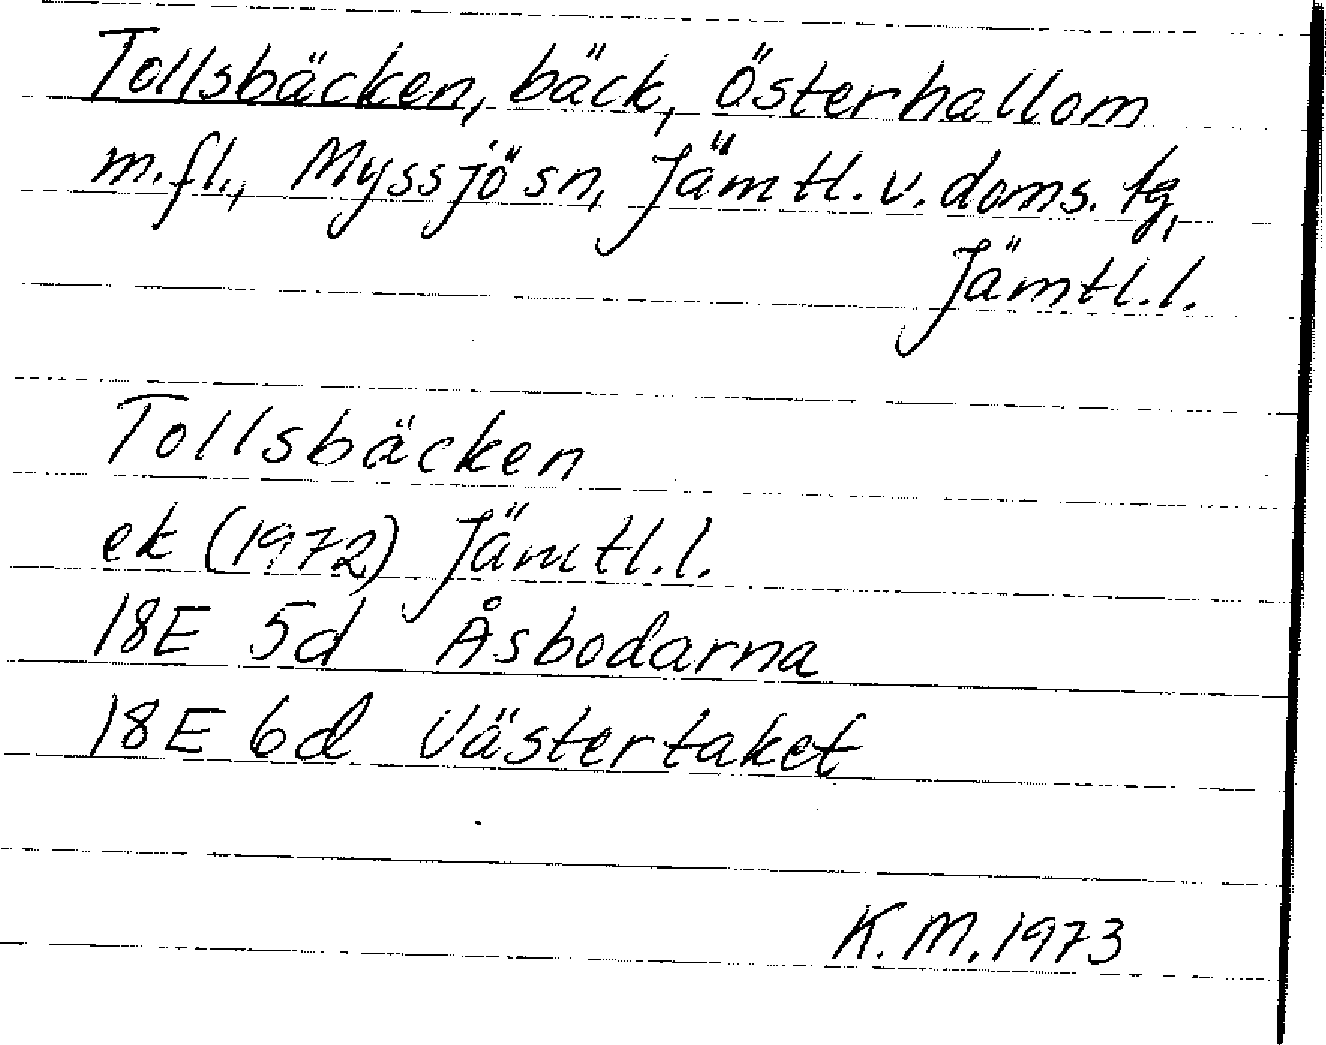 Tollsbäcken, bäck, Österhallom
m.fl., Myssjö sn, Jämtl. v. doms. tg,
Jämtl.l.
Tollsbäcken
ek (1972) Jämtl.l.
18E 5d Åsbodarna
18E 6d Västertaket
K.M. 1973